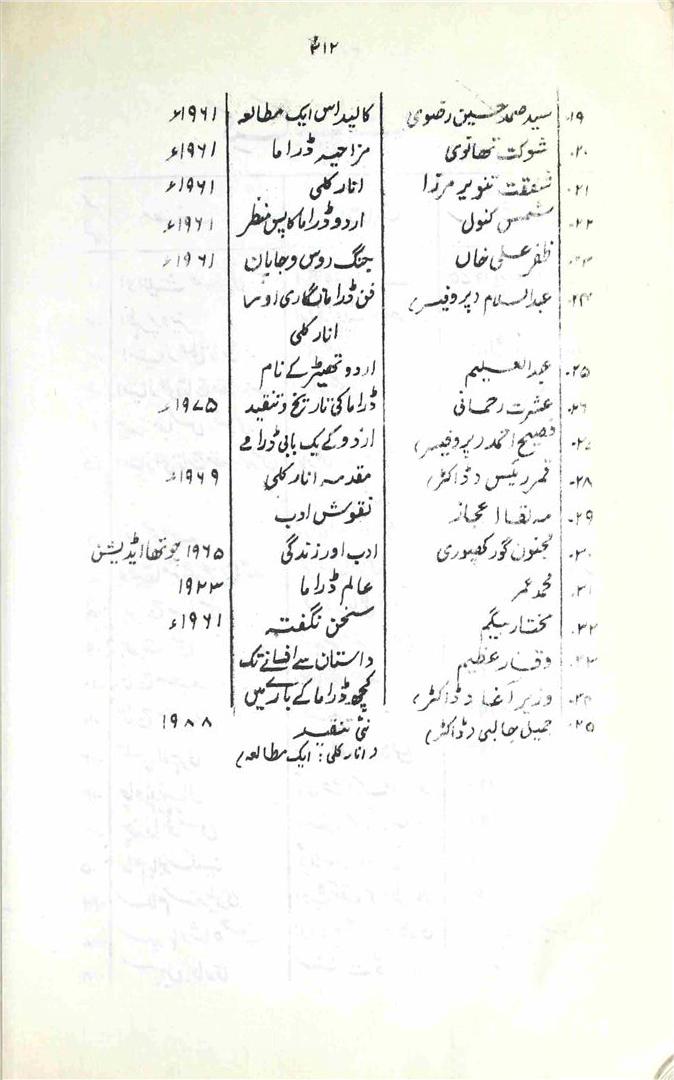 ۳۱۲
۱۹۔ سید صمد حسین رضوی کالیداس ایک مطالعہ ۱۹۶۱ء
۲۰۔ شوکت تھانوی مزاحیہ ڈراما ۱۹۶۱ء
۲۱۔ شفقت تنویر مرزا انارکلی ۱۹۶۱ء
۲۲۔ شمس کنول اردو ڈراما کا پس منظر ۱۹۶۱ء
۲۳۔ ظفر علی خاں جنگ روس و جاپان ۱۹۶۱ء
۲۴۔ عبدالسلام (پروفیسر) فن ڈراما نگاری اور
انارکلی
۲۵۔ عبدالعلیم اردو تھیٹر کے نام
۲۶۔ عشرت رحمانی ڈراما کی تاریخ و تنقید ۱۹۷۵ء
۲۷۔ فصیح احمد (پروفیسر) اردو کے یک بابی ڈرامے
۲۸۔ قمر رئیس (ڈاکٹر) مقدمہ انارکلی ۱۹۶۹ء
۲۹۔ اعجاز نقوش ادب
۳۰۔ مجنوں گورکھپوری ادب اور زندگی ۱۹۶۵ چوتھا ایڈیشن
۳۱۔ محمد عمر عالم ڈراما ۱۹۲۳
۳۲۔ مختار بیگم سخن نگفتہ ۱۹۶۱ء
۳۳۔ وقار عظیم داستان سے افسانے تک
۳۴۔ وزیر آغا (ڈاکٹر) کچھ ڈراما کے بارے میں
۳۵۔ جمیل جالبی (ڈاکٹر) نئی تنقید ۱۹۸۸
(انارکلی: ایک مطالعہ)